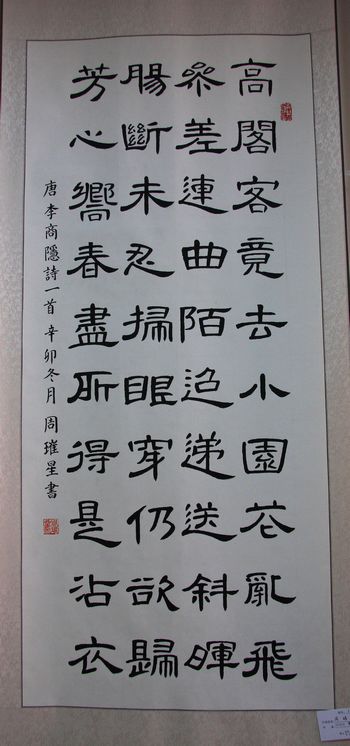 高閣客竟去小園花亂飛
參差連曲陌迢遞送斜暉
腸斷未忍掃眼穿仍欲歸
芳心嚮春盡所得是沾衣
唐李商隱詩一首 辛卯冬月 周璀星書